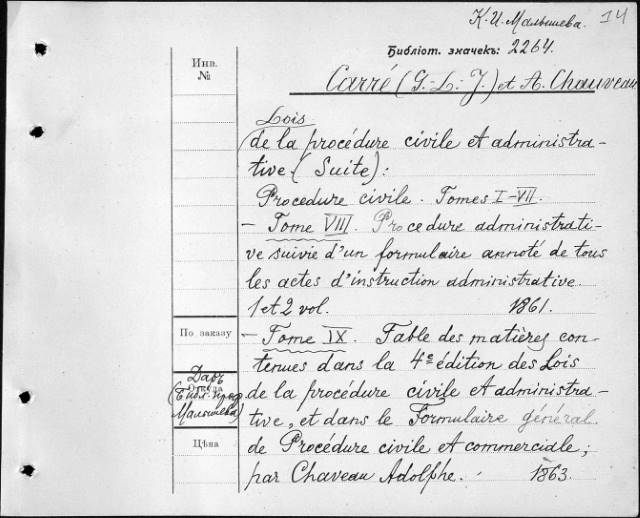 К. И. Малышева. 14
Библіот. значекъ: 2264.
Инв.
№
Carré (G.-L.-J.) et A. Chauveau
Lois
de la procédure civile et administra-
tive (Suite):
Procedure civile. Tomes I-VII.
- Tome VIII. Procedure administrati-
ve suivie d'un formulaire annoté de tous
les actes d'instruction administrative.
1 et 2 vol. 1861.
По заказу
- Tome IX. Table des matières con-
tenues dans la 4e édition des Lois
Даръ
(Библ. проф.
Малышева)
de la procédure civile et administra-
tive, et dans le Formulaire général
Цѣна
de Procédure civile et commerciale;
par Chaveau Adolphe. 1863.